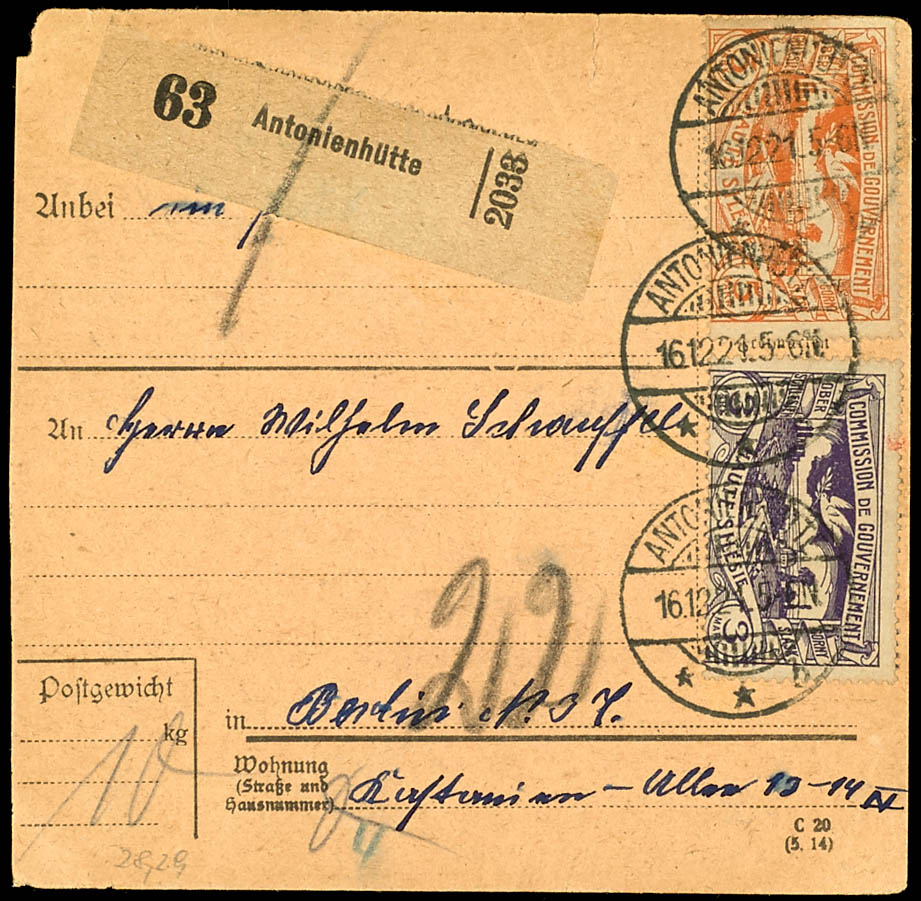 63 Antonienhütte 2033
Anbei
An Herrn Wilhelm Schauffel
Postgewicht
kg
10
in Berlin N. 37.
Wohnung
(Straße und
Hausnummer)
Kastanien-Allee 13-14 IV
C 20
(5. 14)
28,29
ANTONIENHÜTTE
16.12.21.5-6N.
COMMISSION DE GOUVERNEMENT
HAUTE SILÉSIE
ANTONIENHÜTTE
16.12.21.5-6N.
ANTONIENHÜTTE
16.12.21.5-6N.
b
COMMISSION DE GOUVERNEMENT
OBER
HAUTE SILÉSIE
3